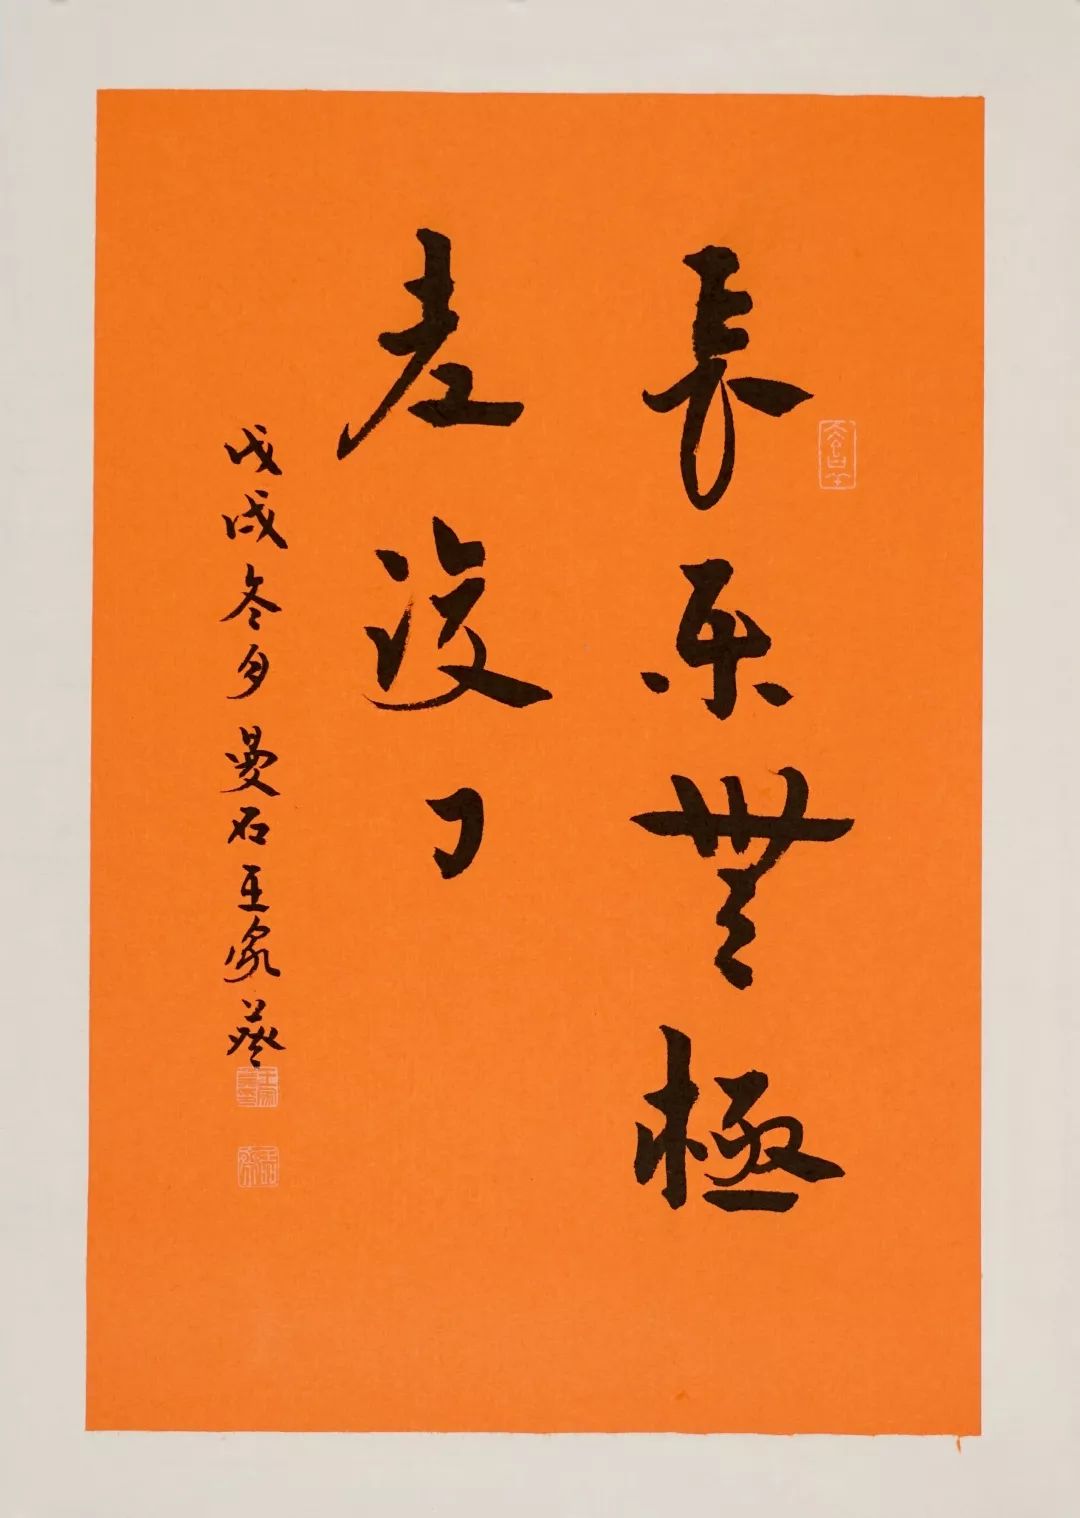 長樂無極
老復丁
戊戌冬月曼石王家葵